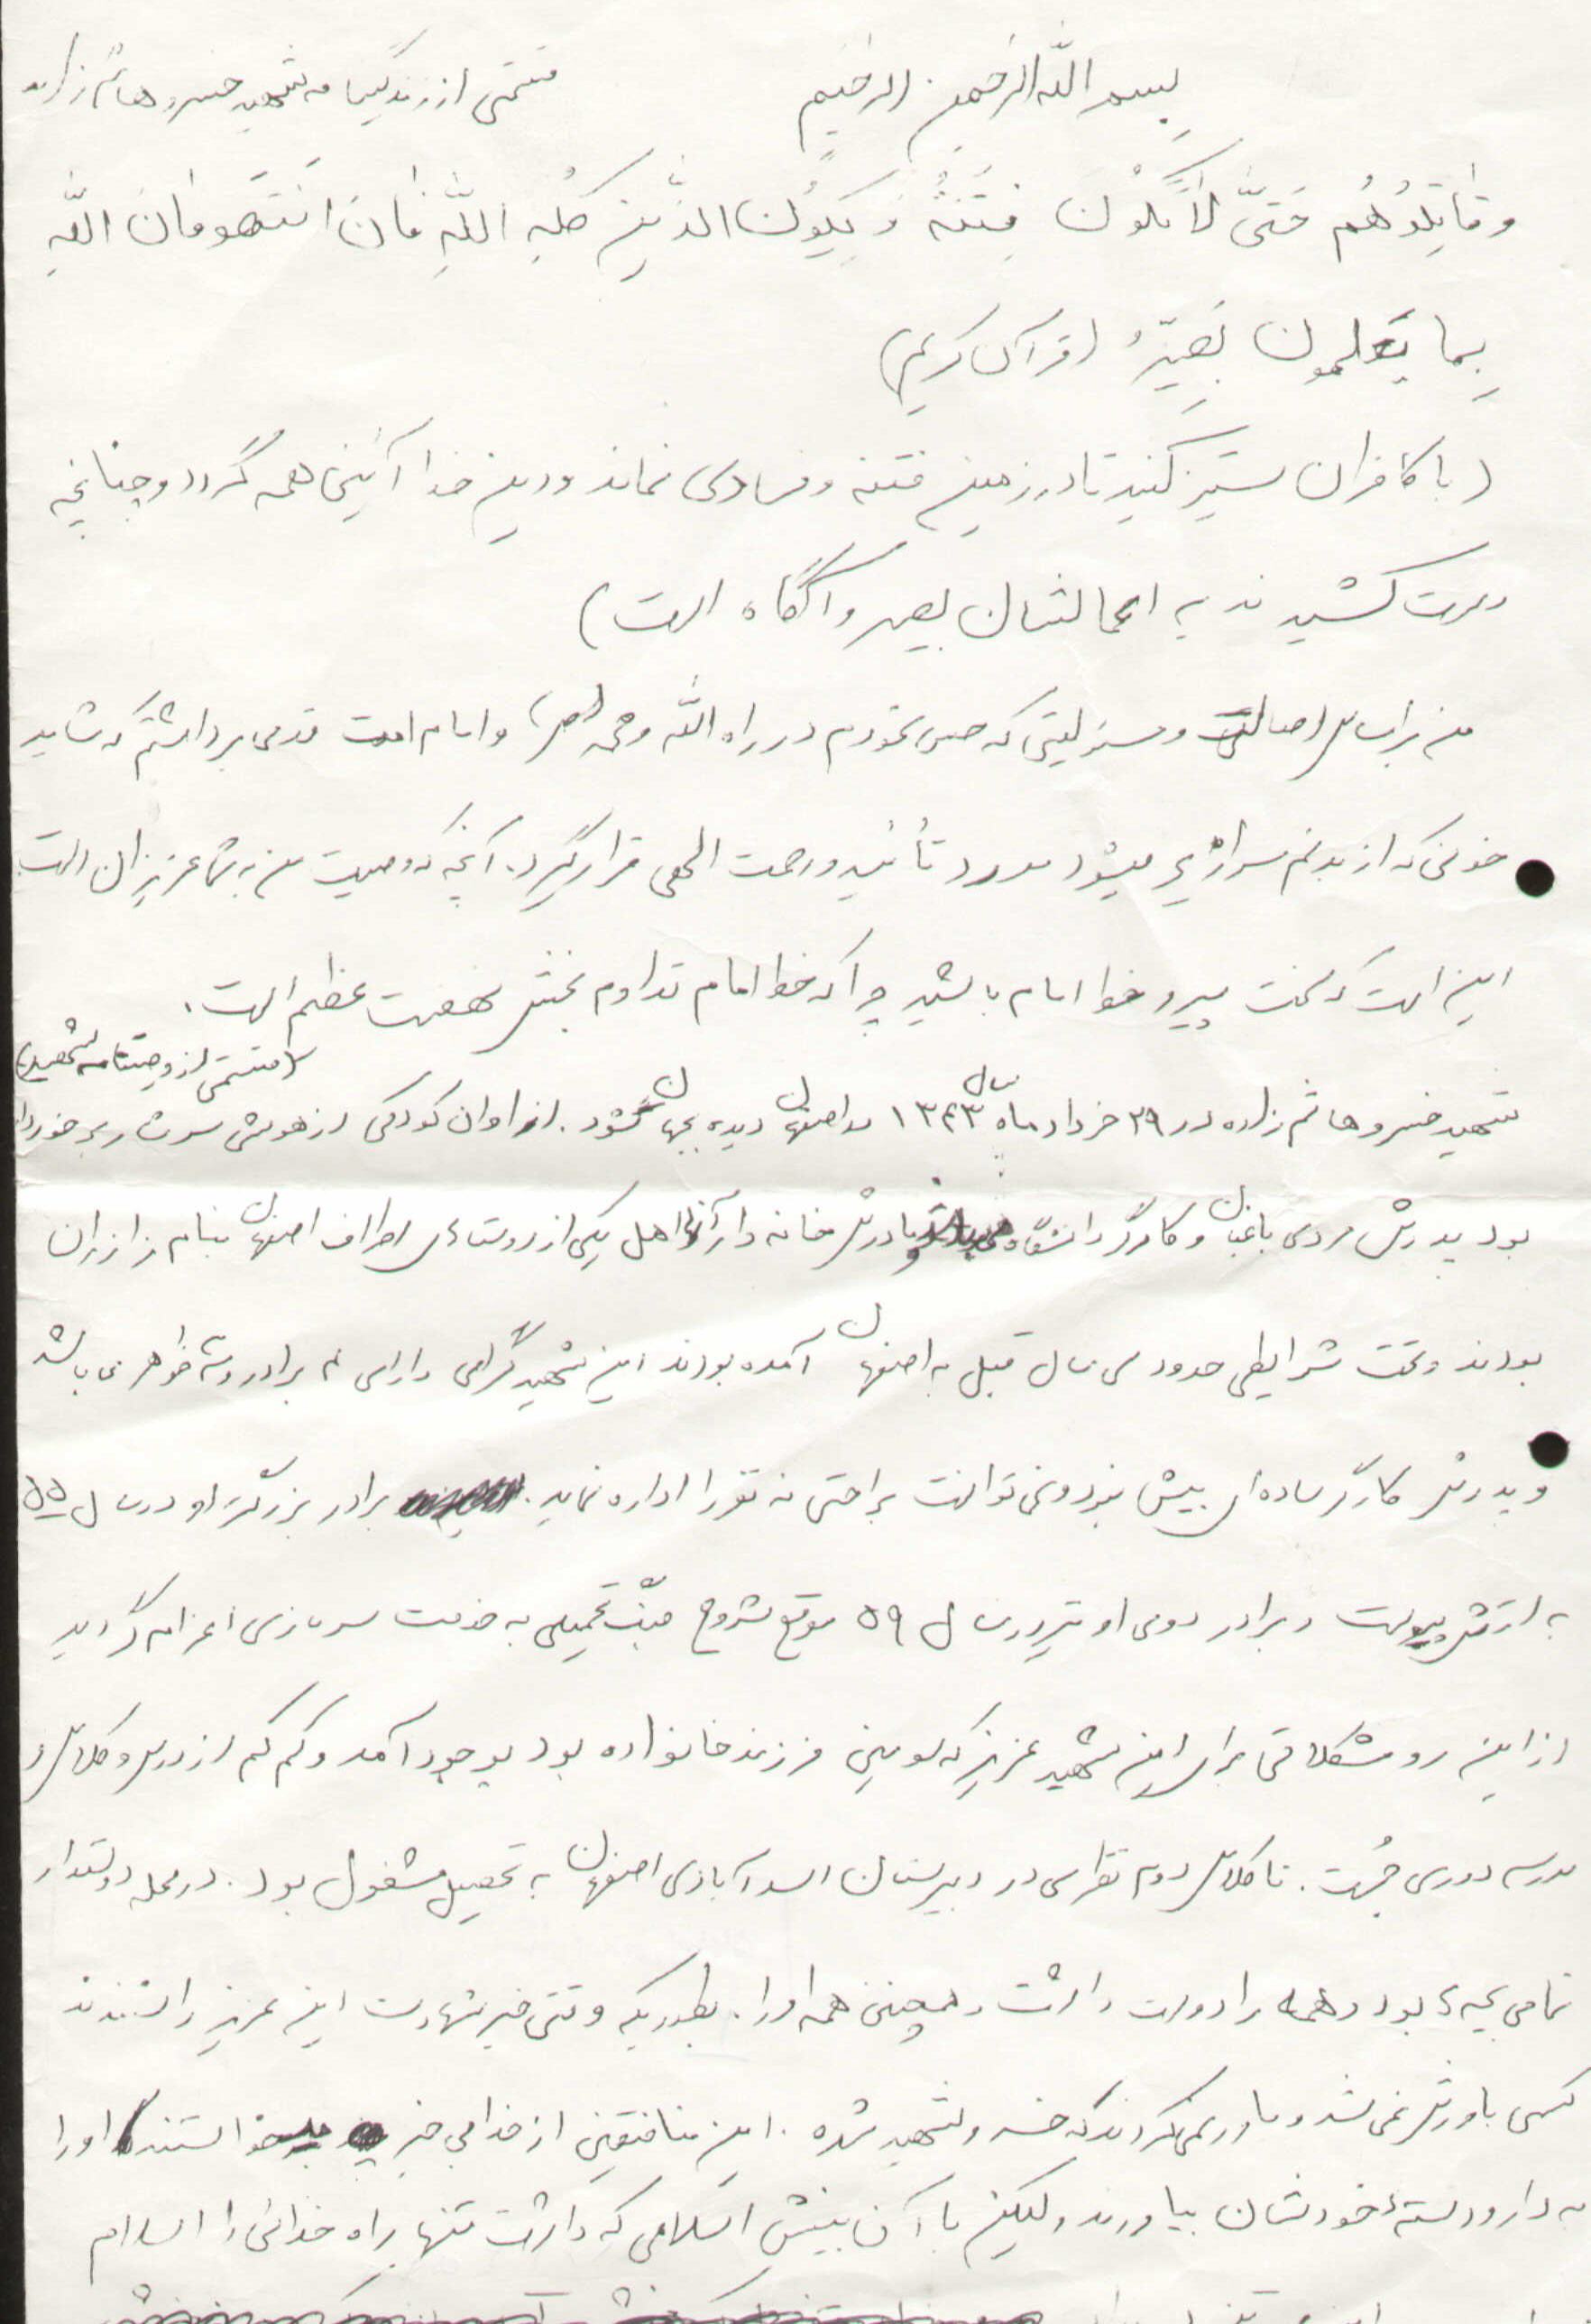 بسم الله الرحمن الرحیم
قسمتی از زندگینامه شهید خسرو هاشم زاده
وَقاتِلُوهُم حَتّیَ لاتَکُونَ فِتنَةُ وَ یَکُونَ الدّینِ کُلِهِ اللّهِ فَاِنَ انتَهَو فَاِنَ اللّهِ
بِما یَعلمونَ بَصیرُ (قرآن کریم)
(با کافران ستیز کنید تا در زمین فتنه و فسادی نماند و دین خدا آئینی همه گردد و چنانچه
دست کشیدند به اعمالشان بصیر و آگاه است)
من براساس اصالت و مسئولیتی که حس نمودم در راه الله و محمد (ص) و امام امت قدمی برداشتم که شاید
خونی که از بدنم سرازیر میشود مورد تأئید و رحمت الهی قرار گیرد. آنچه که وصیت من به شما عزیزان است
این است که سخت پیرو خط امام باشید چرا که خط امام تداوم بخش نهضت عظیم است.
(قسمتی از وصیتنامه شهید)
شهید خسرو هاشم زاده در ۲۹ خرداد ماه سال ۱۳۴۳ در اصفهان دیده بجهان گشود. از اوان کودکی از هوشی سرشار برخوردار
بود پدرش مردی باغبان و کارگر دانشگاه و مادرش خانه دار آنها اهل یکی از روستاهای اطراف اصفهان بنام زازران
بودند و تحت شرایطی حدود سی سال قبل به اصفهان آمده بودند این شهید گرامی دارای نه برادر و سه خواهر می باشد
و پدرش کارگر ساده ای بیش نبود و نمی توانست براحتی نه نفر را اداره نماید. برادر بزرگتر او در سال ۵۵
به ارتش پیوست و برادر دومی او نیز در سال ۵۹ موقع شروع جنگ تحمیلی به خدمت سربازی اعزام گردید
از این رو مشکلاتی برای این شهید عزیز که سومین فرزند خانواده بود بوجود آمد و کم کم از درس و کلاس و
مدرسه دوری جُست. تا کلاس دوم نظری در دبیرستان اسدآبادی اصفهان به تحصیل مشغول بود. در محله دوستدار
تمامی بچه ها بود و همه را دوست داشت و همچنین همه او را. بطوریکه وقتی خبر شهادت این عزیز را شنیدند
کسی باورش نمی شد و باور نمی کردند که خسرو شهید شده. این منافقین از خدا بی خبر میخواستند او را
به دار و دستهٔ خودشان بیاورند ولیکن با آن بینش اسلامی که داشت تنها راه خدائی را اسلام